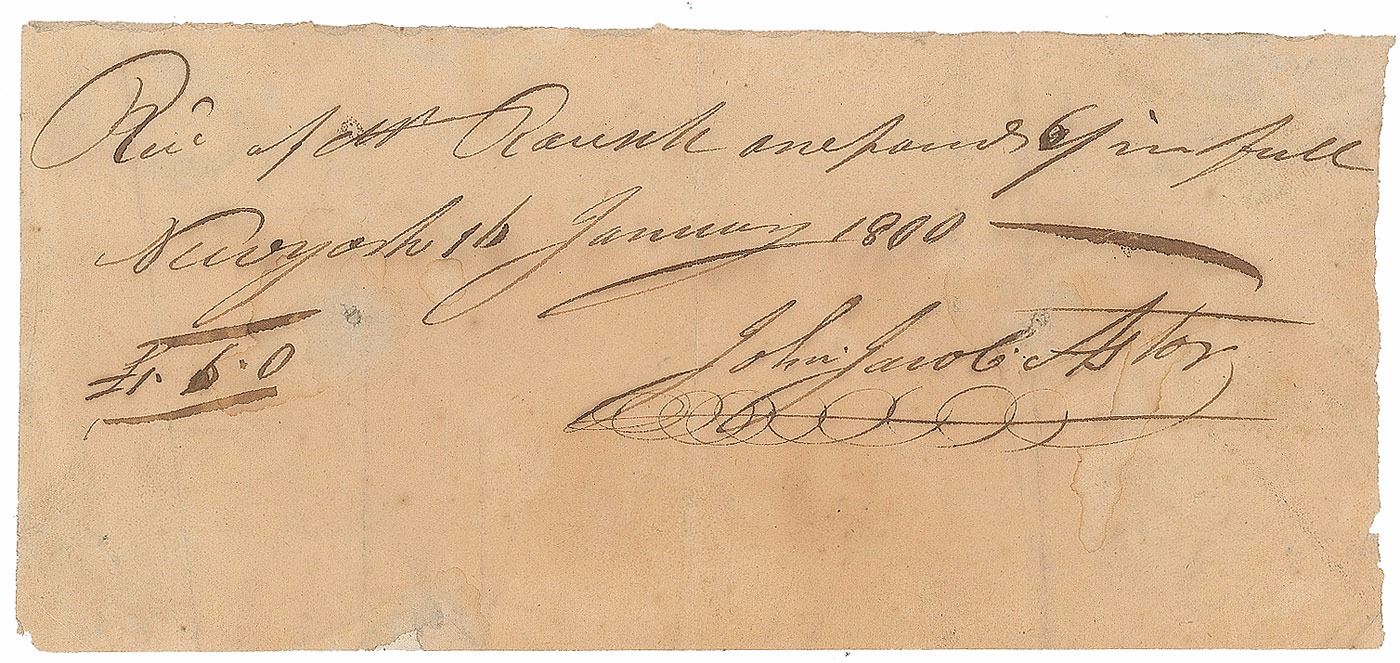 Rec^d of M^r onepound 6/ in full
Newyork 16 January 1800
£1.6.0
John Jacob Astor